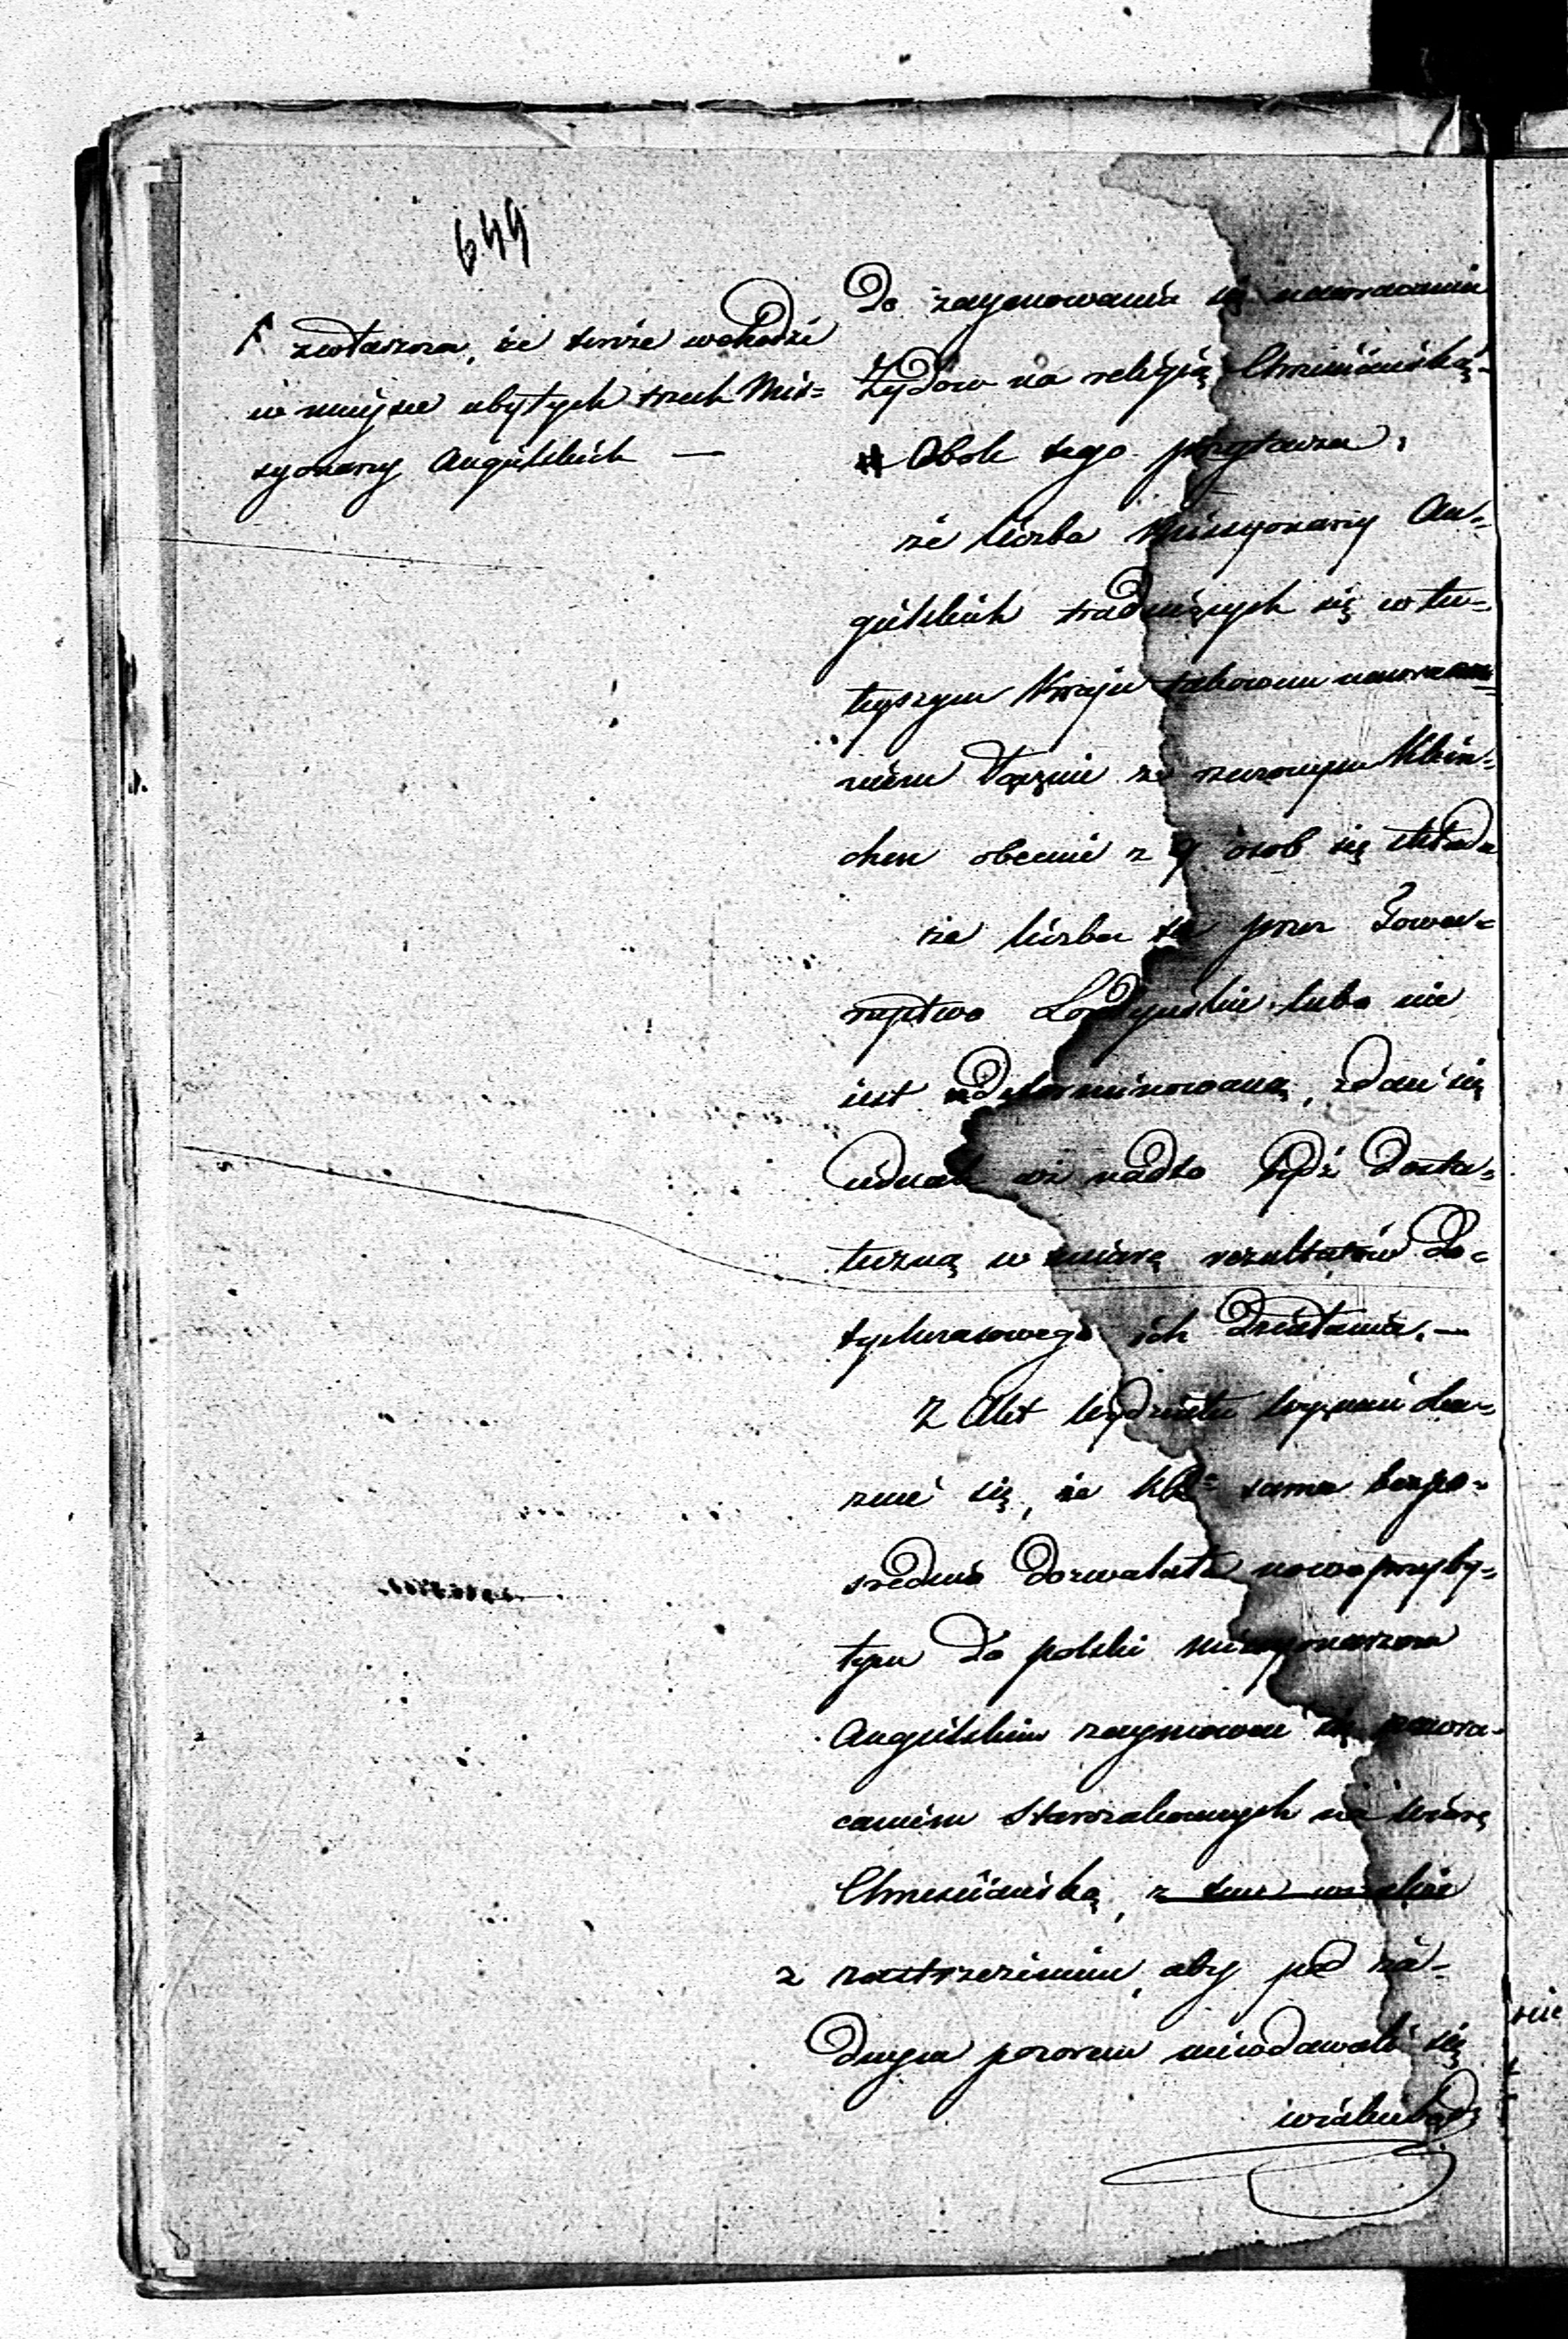 649
zwłaszcza, że tenże wchodzi
w mieysce ubytych trzech Mis=
syonarzy Angielskich —
Do zaymowania się nawracaniem
Żydów na religią Chrześciańską.
# Obok tego przytacza:
że liczba Missyonarzy An=
gielskich trudniących się w tu=
teyszym Kraju takowem nawraca=
niem łącznie ze rzeczonym
obecnie z 9 osób się składa
że liczba ta przez Towa=
rzystwo Londyńskie lubo nie
jest zdeterminowaną, zdaie się
iednak aż nadto bydź dosta=
teczną w miarę rezultatów do=
tychczasowego ich działania. —
Z Akt Wydziału Wyznań oka=
zuie się, że sama bezpo=
srednio dozwalała nowoprzyby=
łym do polski missyonarzom
Angielskim zaymować się nawra=
caniem Starozakonnych na wiarę
Chrześciańską,
z zastrzeżeniem, aby pod ża=
dnym pozorem niewdawali się
wiakiebądź